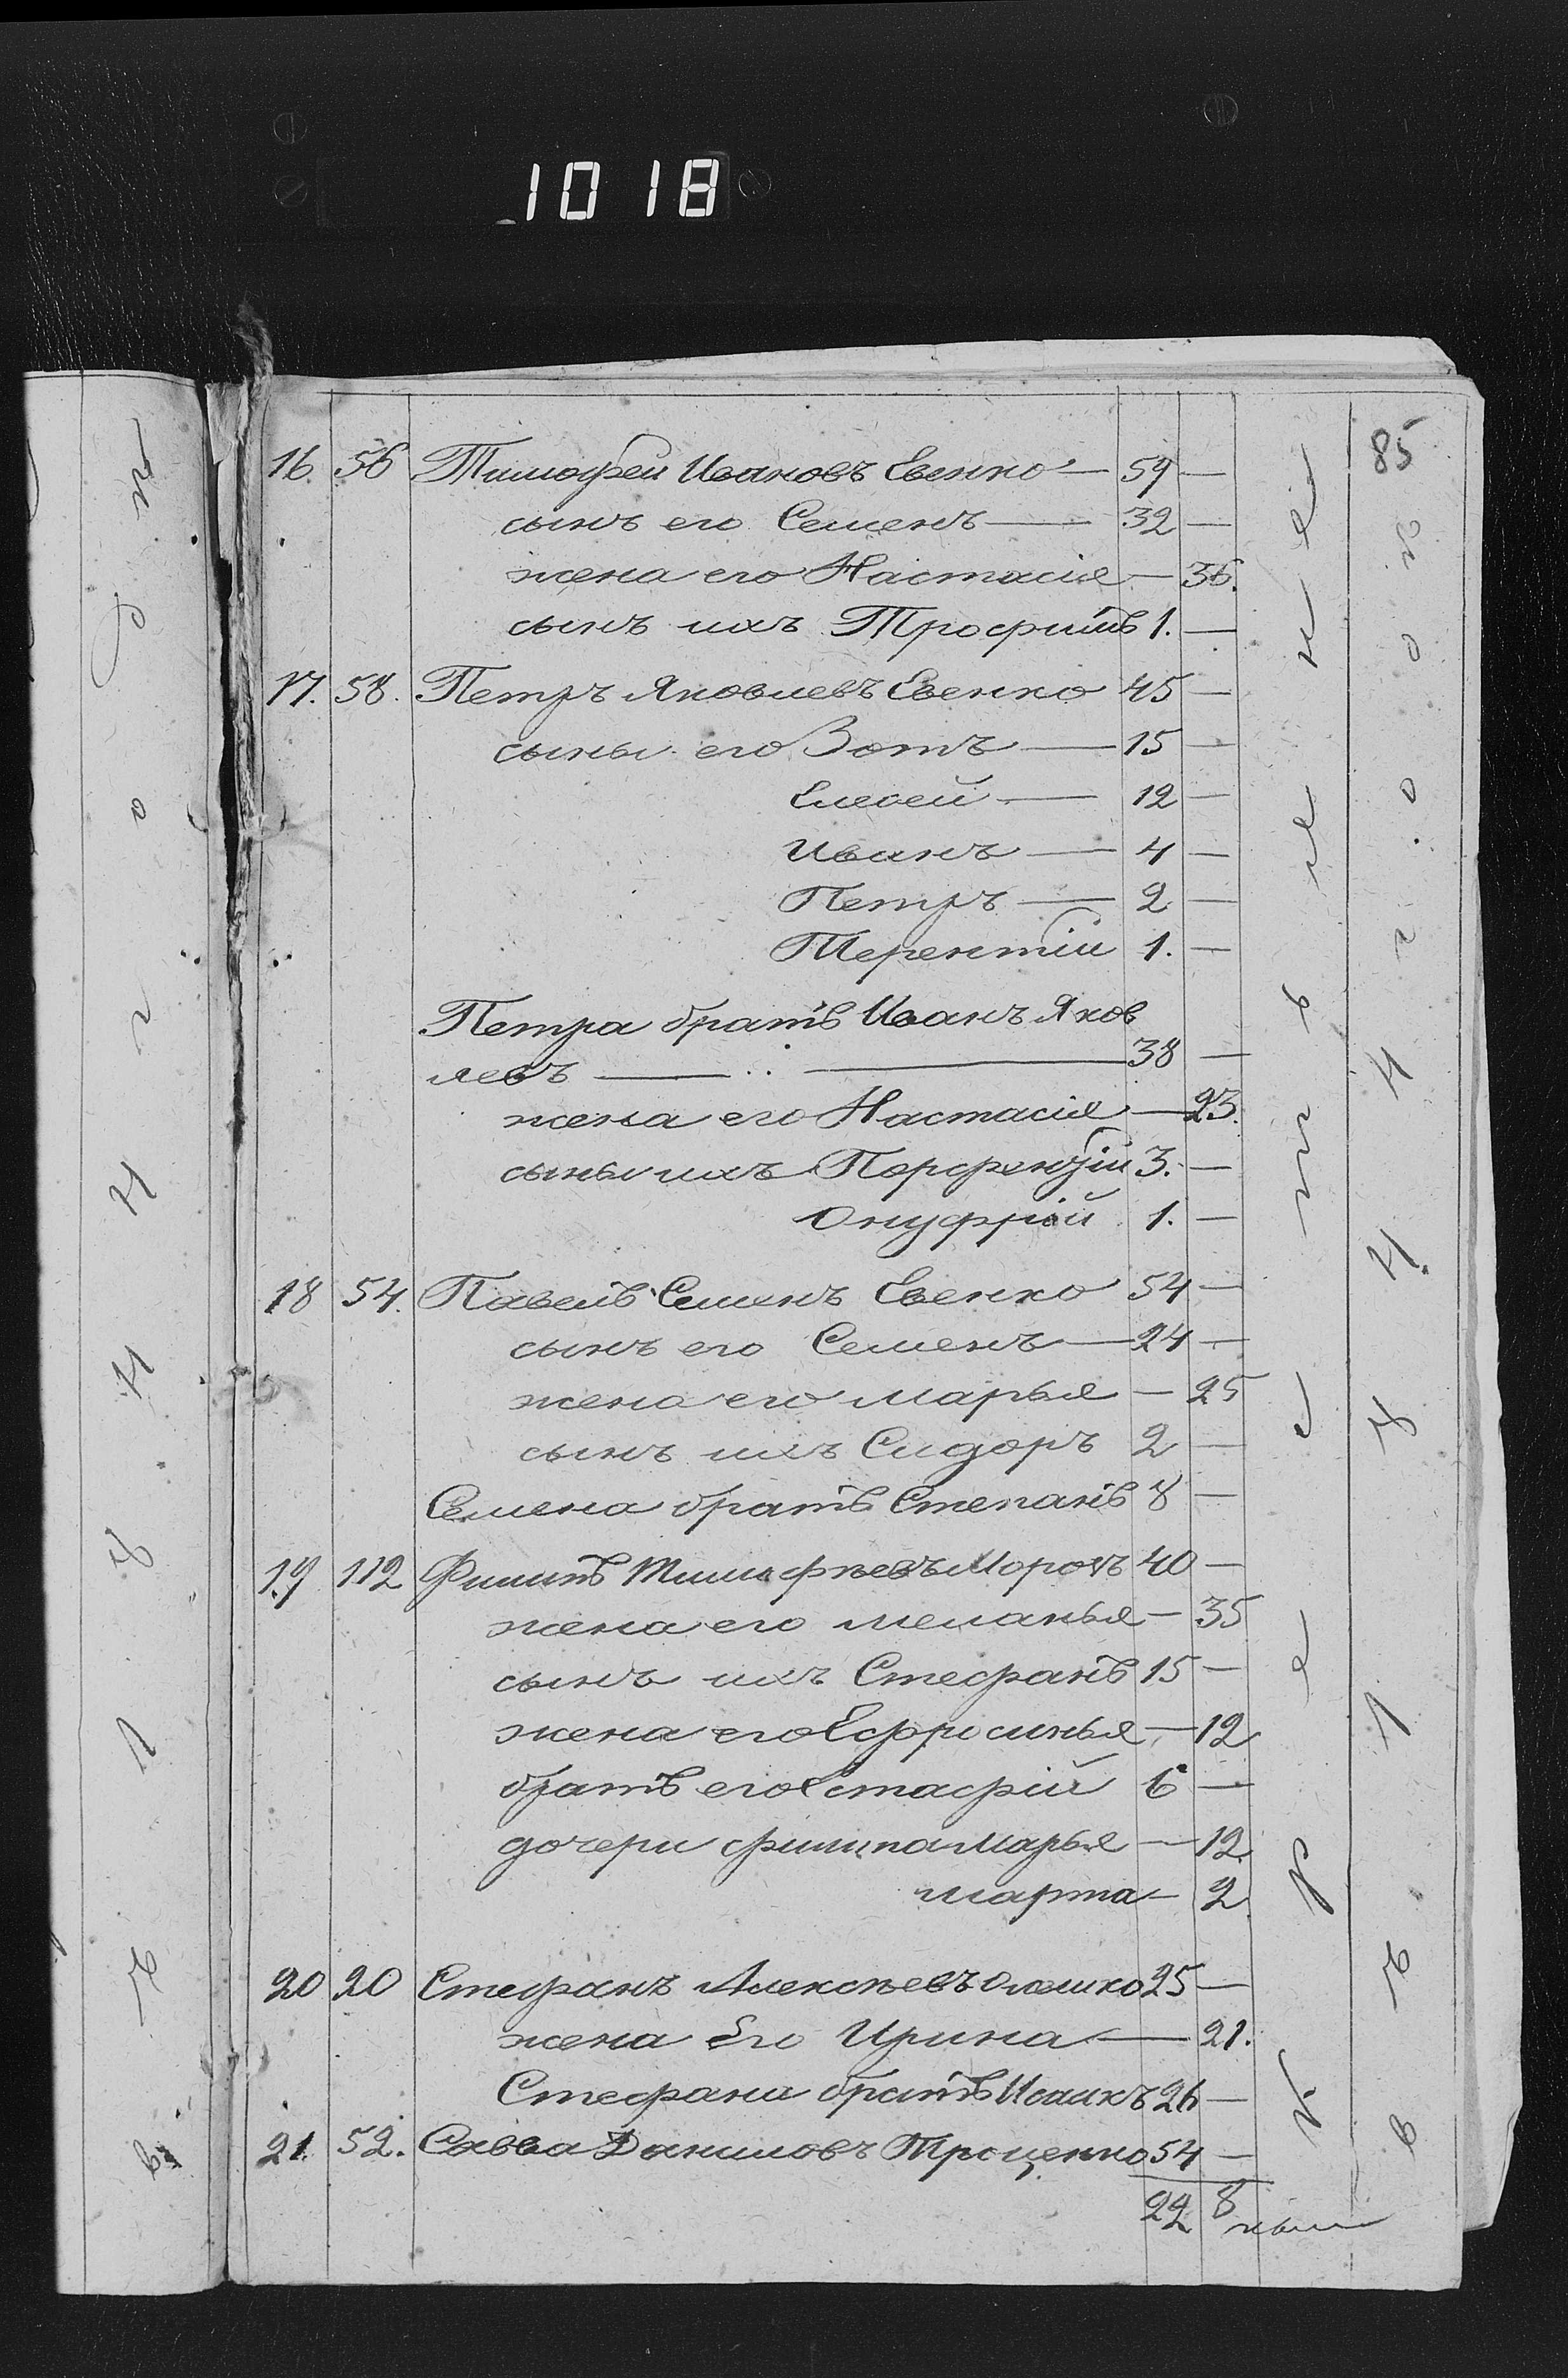 1018
85
16. 56 Тимофей Ивановъ Евенко — 59 —
сынъ его Семенъ — 32 —
жена его Настасія — 36.
сынъ ихъ Трофимъ 1. —
17. 58. Петръ Яковлевъ Евенко 45 —
сыны его Зотъ — 15 —
Елесей — 12 —
Иванъ — 4 —
Петръ — 2 —
Терентій 1. —
Петра братъ Иванъ Яков
левъ — 38 —
жена его Настасія — 23.
сыны ихъ Порфентій 3. —
Онуфрій 1. —
18 54. Павелъ Семенъ Евенко 54 —
сынъ его Семенъ — 24 —
жена его Марья — 25
сынъ ихъ Сидоръ 2 —
Семена братъ Степанъ 8 —
19 112 Филипъ Тимофѣевъ Морозъ 40 —
жена его меланья — 35
сынъ ихъ Стефанъ 15 —
жена его Ефросинья — 12
братъ его Естафій 6 —
дочери филипа Марья — 12
марта — 2
20 20 Стефанъ Алексѣевъ Олешко 25 —
жена Его Ирина — 21.
Стефана братъ Исакъ 26 —
21. 52. Савва Даниловъ Троценко 54 —
22 8